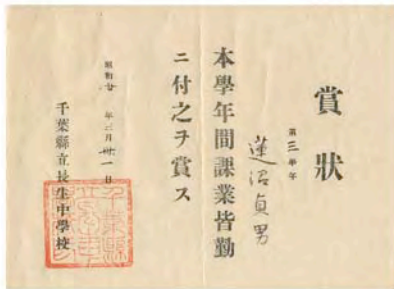 賞狀
第三學年
蓮沼貞男
本學年間課業皆勤
ニ付之ヲ賞ス
昭和廿年三月卅一日
千葉縣立長生中學校